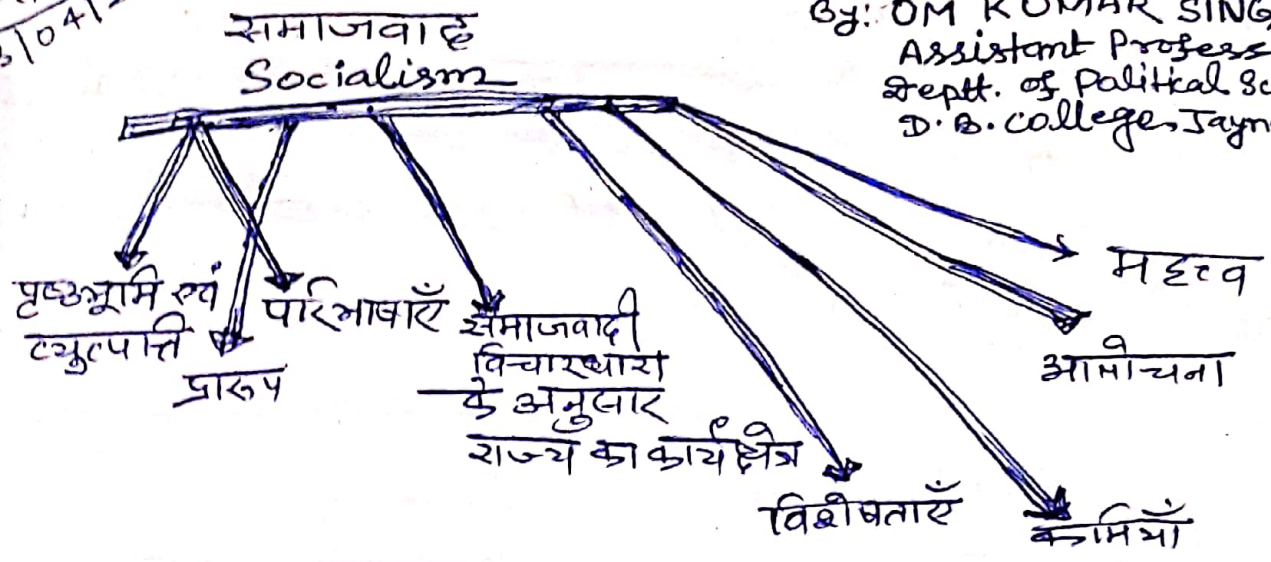 3/04/
समाजवाद
Socialism
By: OM KUMAR SING
Assistant Profess
Deptt. of Political Sc
D. B. College, Jayn
पृष्ठभूमि एवं
व्युत्पत्ति
प्रारूप
परिभाषाएँ
समाजवादी
विचारधारा
के अनुसार
राज्य का कार्यक्षेत्र
विशेषताएँ
कमियाँ
आलोचना
महत्त्व